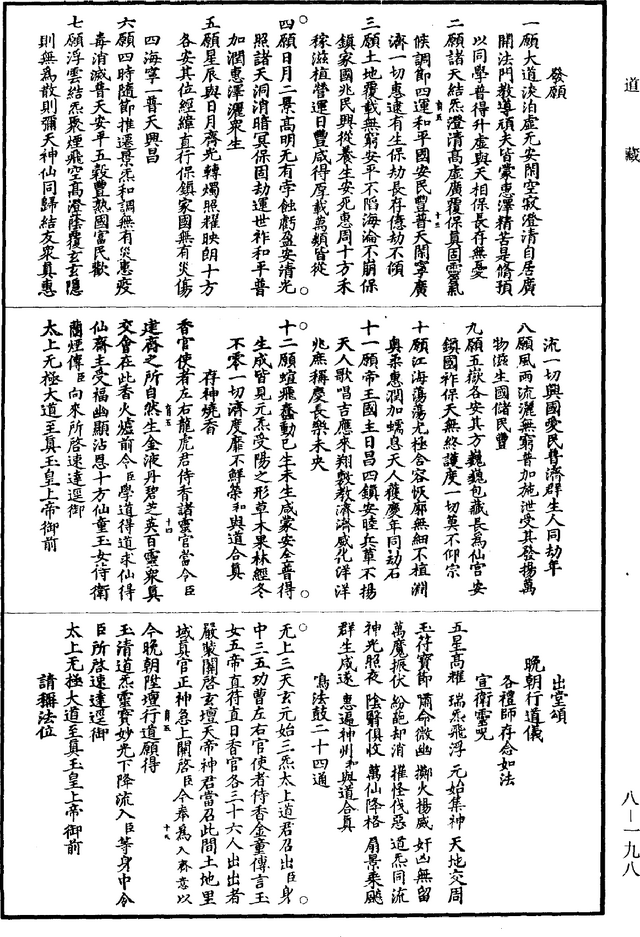 道藏
發願
一願大道淡泊虛无安閑空寂澄清自居廣
開法門教導頑夫皆蒙惠澤精苦是脩預
以同學普得升虛與天相保長存無憂
二願諸天結炁澄清高虛廣覆保真固靈氣
候調節四運和平國安民豐普天閑寧廣
濟一切惠逮有生保劫長存億劫不傾
三願土地覆載無窮安平不陷海淪不崩保
鎮家國兆民興從養生安死惠周十方禾
稼滋植營運日豐咸得厚載萬類皆從
四願日月二景高明无有孛蝕虧盈安清光
照諸天洞消暗冥保固劫運世祚和平普
加潤惠澤灑衆生
五願星辰與日月齊光轉燭照耀映朗十方
各安其位經緯直行保鎮家國無有災傷
四海寧一普天興昌
六願四時隨節推遷景炁和調無有災惠疫
毒消滅普天安平五穀豐熟國富民歡
七願浮雲結炁聚煙飛空高澄蔭覆玄玄隱
則無爲散則彌天神仙同歸結友衆真惠
流一切興國愛民普濟群生人同劫年
八願風雨流灑無窮普加施泄受其發揚萬
物滋生國儲民豐
九願五嶽各安其方巍巍包藏長爲仙宮安
鎮國祚保天無終護度一切莫不仰宗
十願江海蕩蕩尤極含容恢廓無細不植淵
奧柔惠潤加蠕息天人獲慶年同劫石
十一願帝王國主日昌四鎮安睦兵革不揚
天人歌唱吉應來翔聲教濟濟威化洋洋
兆庶稱慶長樂未央
十二願蝖飛蠢動已生未生咸蒙安全普得
生成皆見元炁受陽之形草木果林經冬
不零一切濟度靡不鮮榮和與道合真
存神燒香
香官使者左右龍虎君侍香諸靈官當令臣
建齋之所自然生金液丹碧芝英百靈衆真
交會在此香火爐前令臣學道得道求仙得
仙齋主受福幽顯沾恩十方仙童玉女侍衛
蘭煙傳臣向來所啓速達逕御
太上无極大道至真玉皇上帝御前
出堂頌
晚朝行道儀
各禮師存念如法
宣衛靈呪
五星高耀 瑞炁飛浮 元始集神 天地交周
玉符寶節 嘯命徵幽 擲火揚威 奸凶無留
萬魔振伏 紛葩却消 摧怪伐惡 道炁同流
神光照夜 陰翳俱收 萬仙降格 扇景乘飈
群生咸遂 惠遍神州 和與道合真
鳴法鼓二十四通
无上三天玄元始三炁太上道君召出臣身
中三五功曹左右官使者侍香金童傳言玉
女五帝直符直日香官各三十六人出出者
嚴裝關啓玄壇天帝神君當召此間土地里
域真官正神急上關啓臣今奉爲入齋意以
今晚朝陞壇行道願得
玉清道炁靈寶妙光下降流入臣等身中令
臣所啓速達逕御
太上无極大道至真玉皇上帝御前
請稱法位
八—一九八